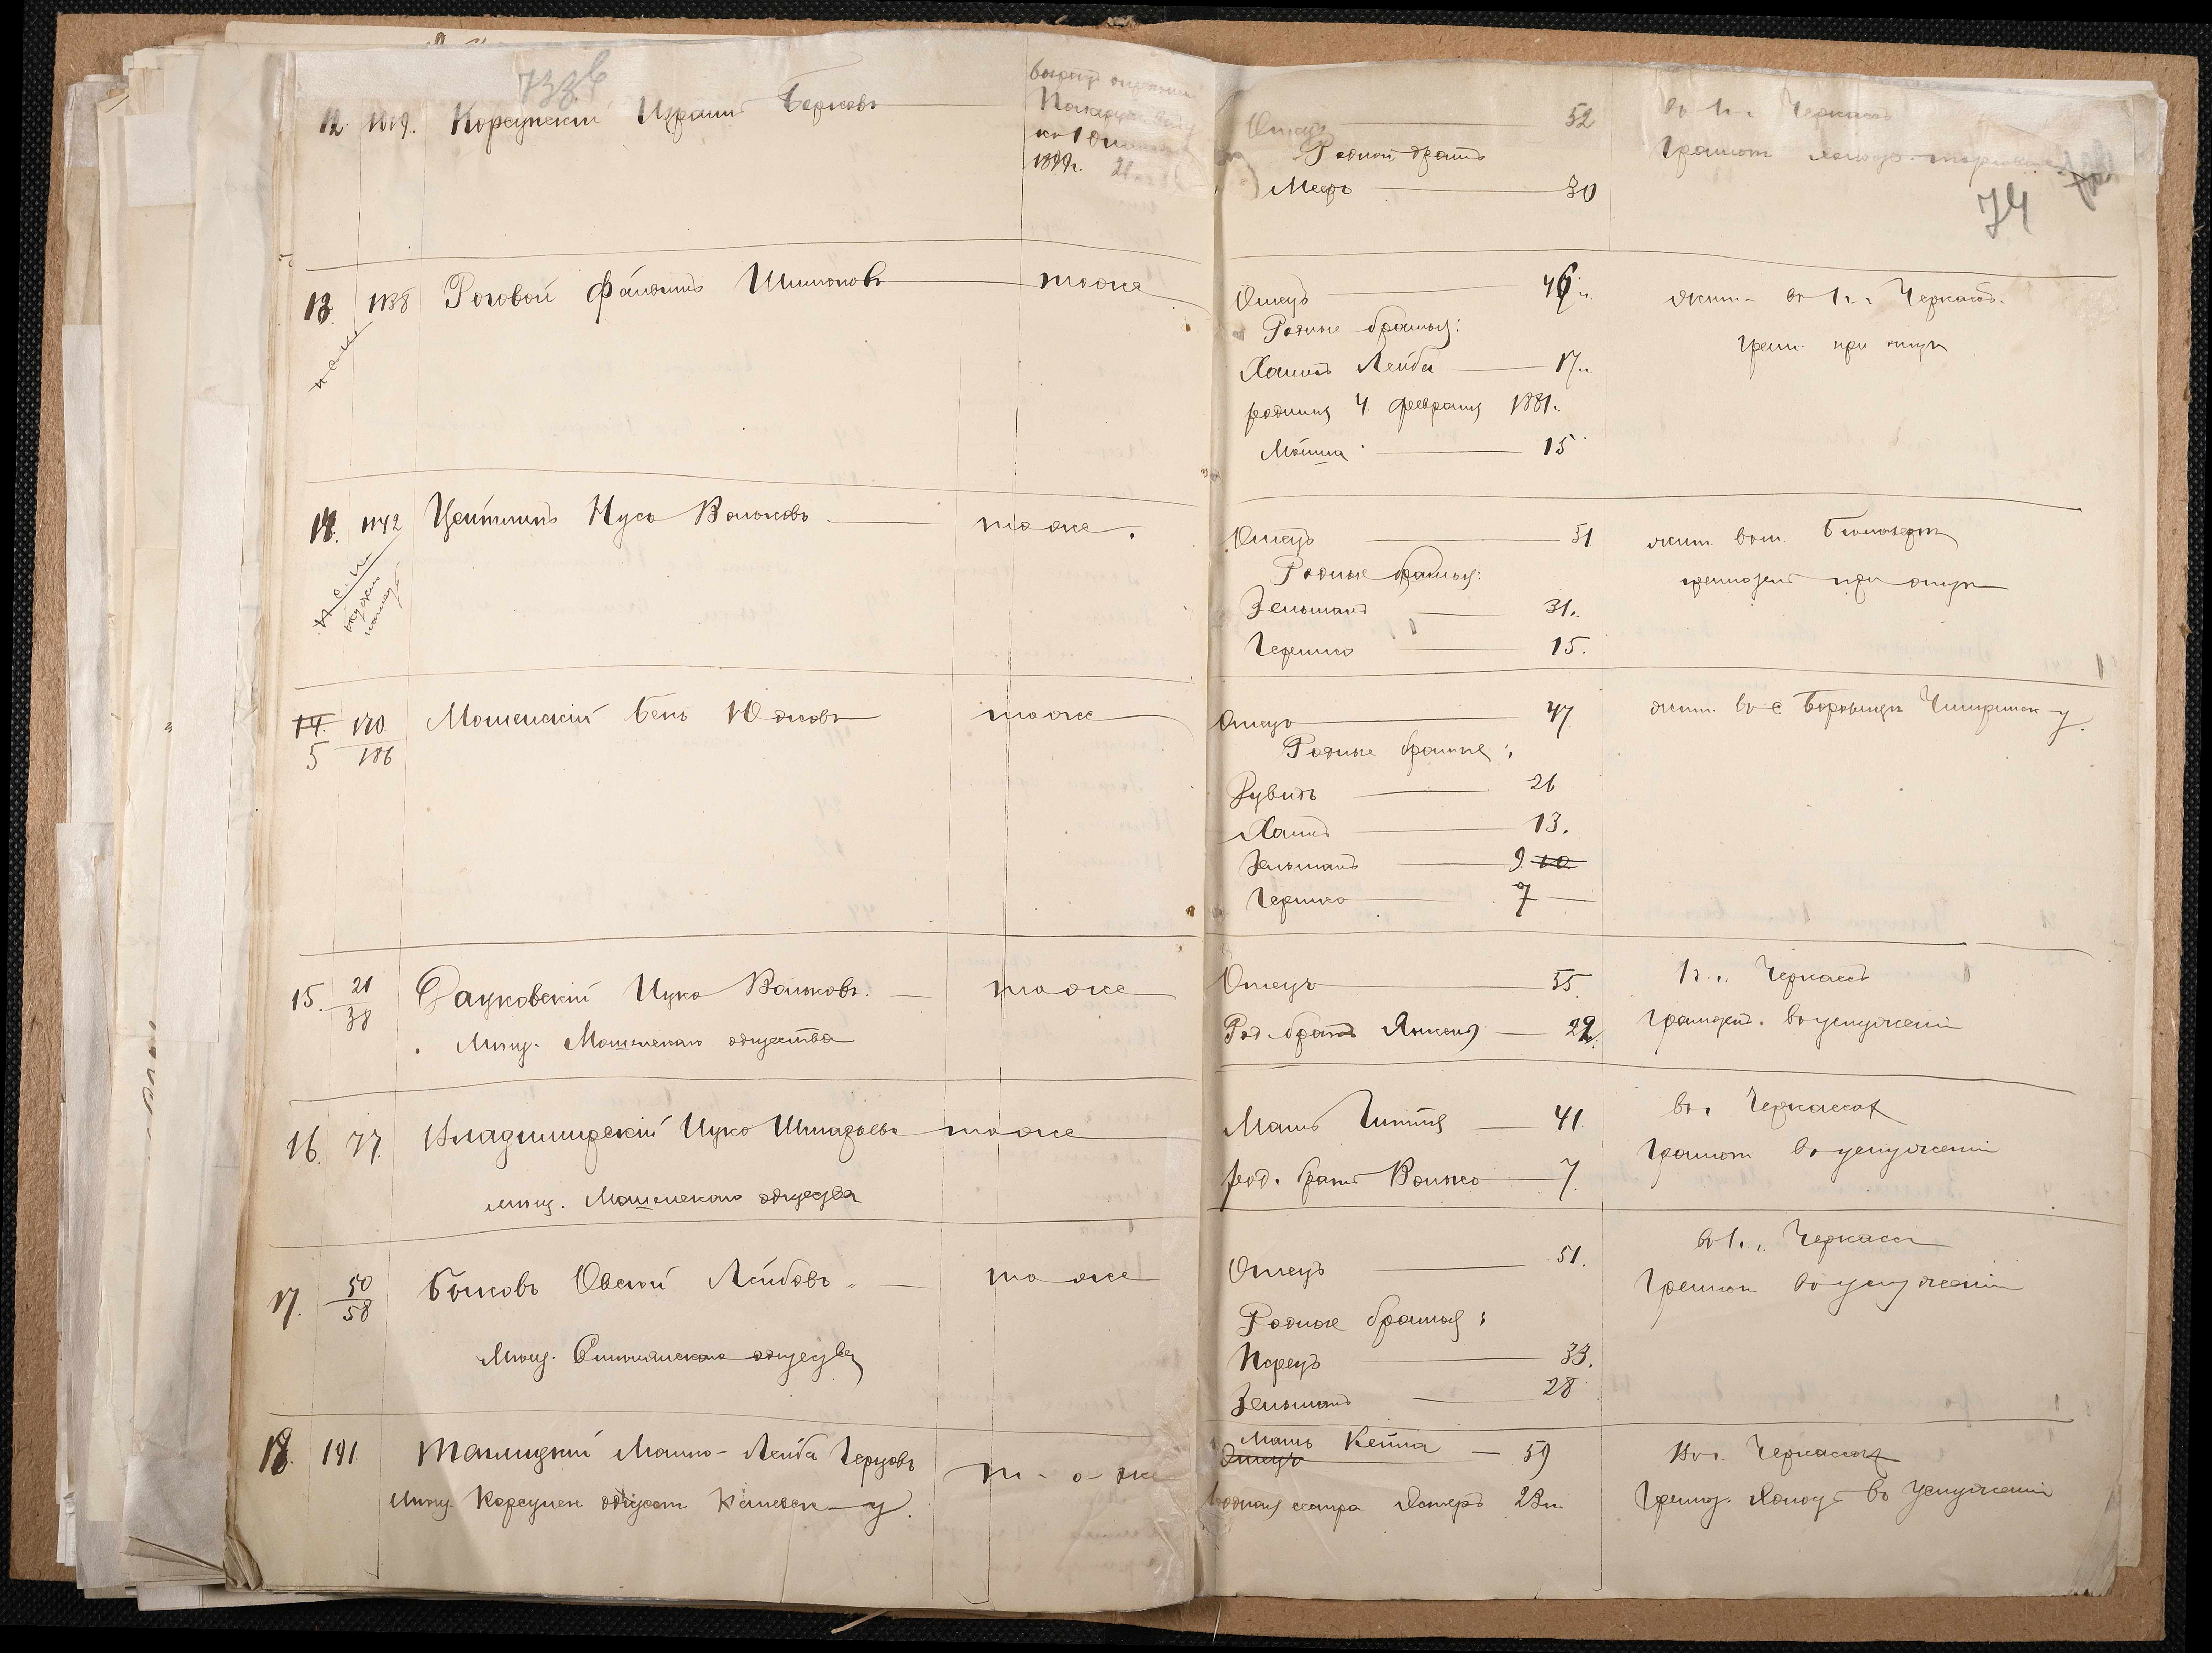 73 зв
12. 1019. Корсунскій Израиль Берковъ
1899 г. 21
Отецъ 52
Родной братъ
Меер 30
въ г. Черкасах
74
13. 1138 Роговой Файвишъ Шимоновъ тоже
Отецъ 46 л.
Родные братья:
Хаимъ Лейба 17 л.
родился 4 февраля 1881 г.
Мойша 15
жит. въ г. Черкасс.
грам. при отцѣ
14. 1142 Цейтлинъ Нусь Вольковъ тоже.
Отецъ 51
Родные братья:
Зельманъ 31.
Гершко 15.
жит. въ м. Бѣлозерьѣ
при отцѣ
14. 5 170/186 Мошенскій Бень Юдковъ тоже
Отецъ 47
Родные братья:
Рувинъ 26
Хаимъ 13.
Зельманъ 9 10.
Гершко 7
жит. въ с Боровицѣ Чигиринск у.
15. 21/38 Вольковъ. тоже
Мѣщ. Мошенскаго общества
Отецъ 55.
Род. братъ Янкель 29.
г. Черкассы
въ услуженіи
16. 77. Владимирскій Ицко Шмарьевъ тоже
мѣщ. Мошенскаго общества
Мать Гитля 41.
род. братъ Волько 7.
въ г. Черкассах
Грамот въ услуженіи
17. 50/58 Быковъ Овсей Лейбовъ. тоже
Мѣщ. общества
Отецъ 51.
Родные братья:
Перецъ 33.
Зельманъ 28
въ г. Черкассы
Грамот въ услуженіи
18. 191. Таклицкій Мошко-Лейба Герцовъ т-о-же
Мѣщ. Корсунск общест Каневск у.
Мать Кейла 59
Отецъ
Родная сестра Эстеръ 23 л.
Въ г. Черкассах
Грамот. Холост въ услуженіи